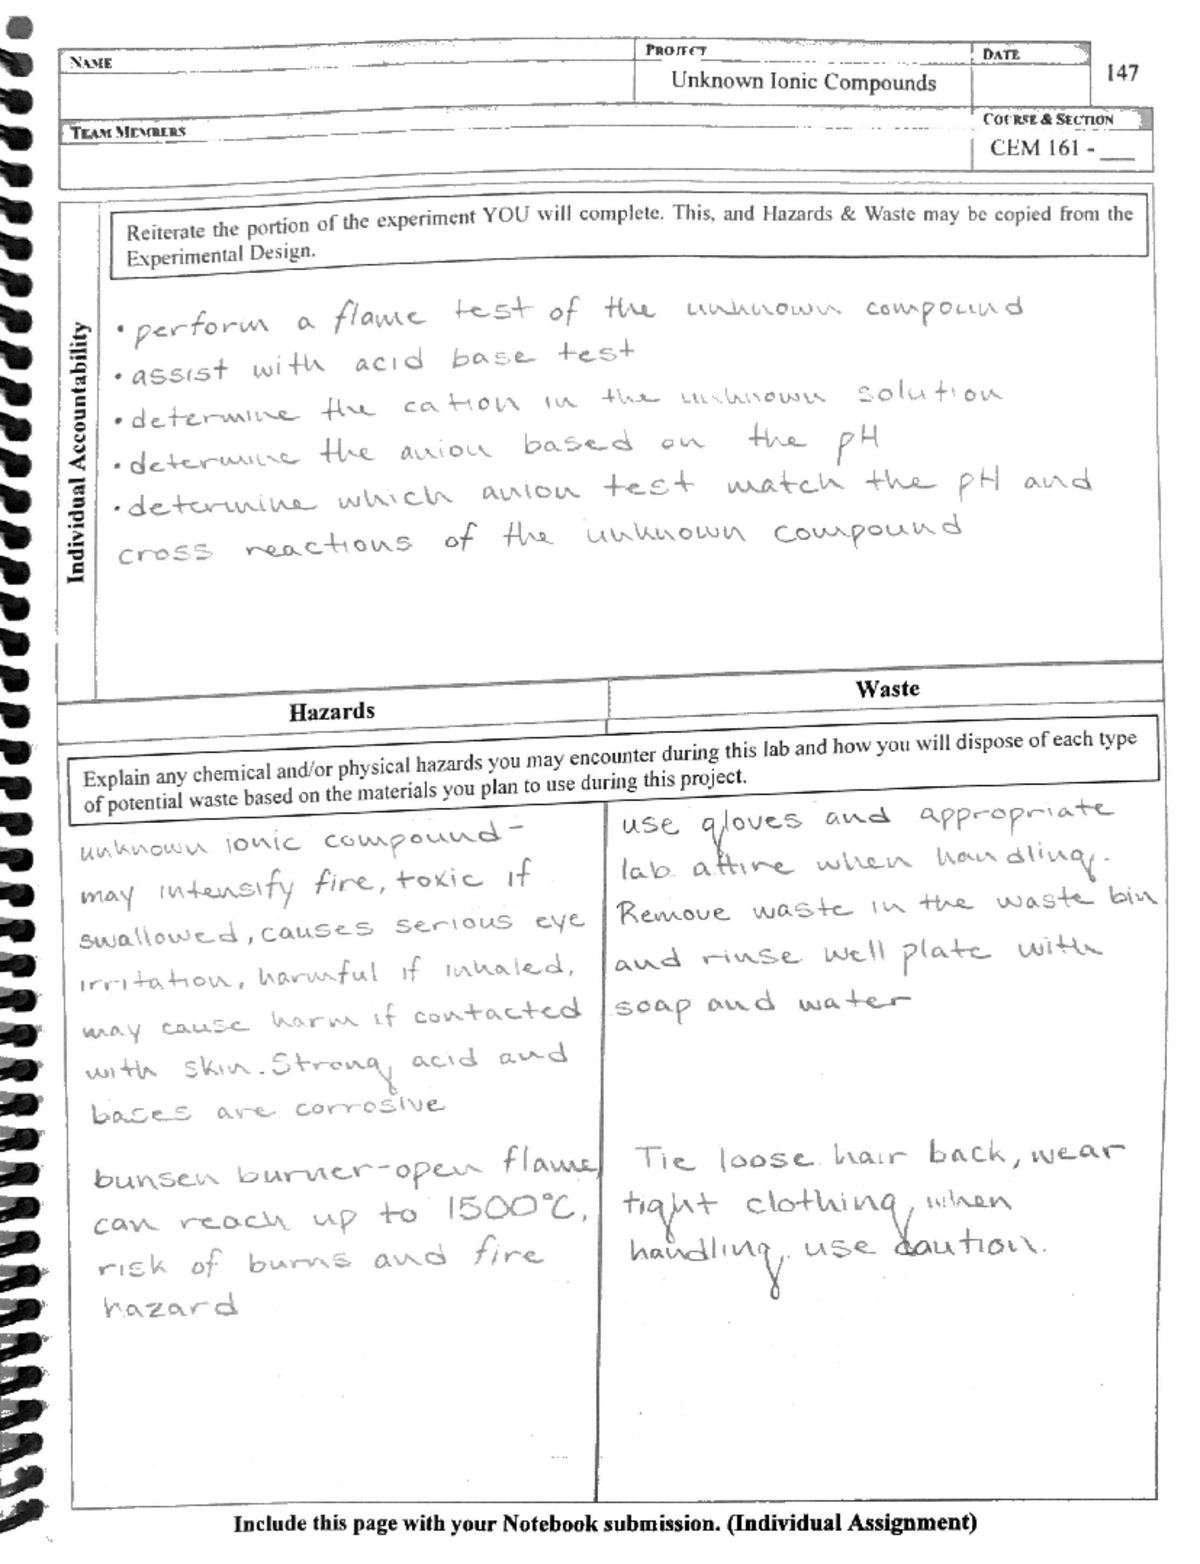 NAME
PROJECT
DATE
Unknown Ionic Compounds
147
TEAM MEMBERS
COURSE & SECTION
CEM 161 - ___
Individual Accountability
Reiterate the portion of the experiment YOU will complete. This, and Hazards & Waste may be copied from the
Experimental Design.
• perform a flame test of the unknown compound
• assist with acid base test
• determine the cation in the unknown solution
• determine the anion based on the pH
• determine which anion test match the pH and
cross reactions of the unknown compound
Hazards
Waste
Explain any chemical and/or physical hazards you may encounter during this lab and how you will dispose of each type
of potential waste based on the materials you plan to use during this project.
unknown ionic compound-
may intensify fire, toxic if
swallowed, causes serious eye
irritation, harmful if inhaled,
may cause harm if contacted
with skin. Strong acid and
bases are corrosive
bunsen burner-open flame,
can reach up to 1500°C,
risk of burns and fire
hazard
use gloves and appropriate
lab attire when handling.
Remove waste in the waste bin
and rinse well plate with
soap and water
Tie loose hair back, wear
tight clothing, when
handling, use caution.
Include this page with your Notebook submission. (Individual Assignment)